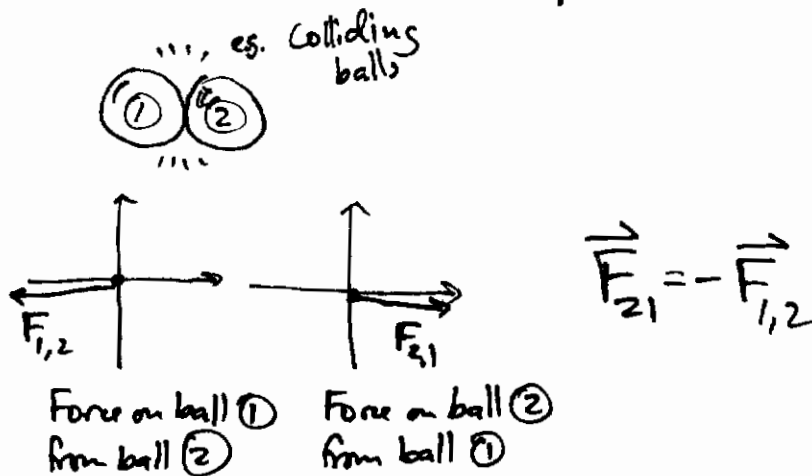 eg. Colliding
balls
① ②
F₁,₂ F₂,₁
F₂₁ = - F₁,₂
Force on ball ① Force on ball ②
from ball ② from ball ①